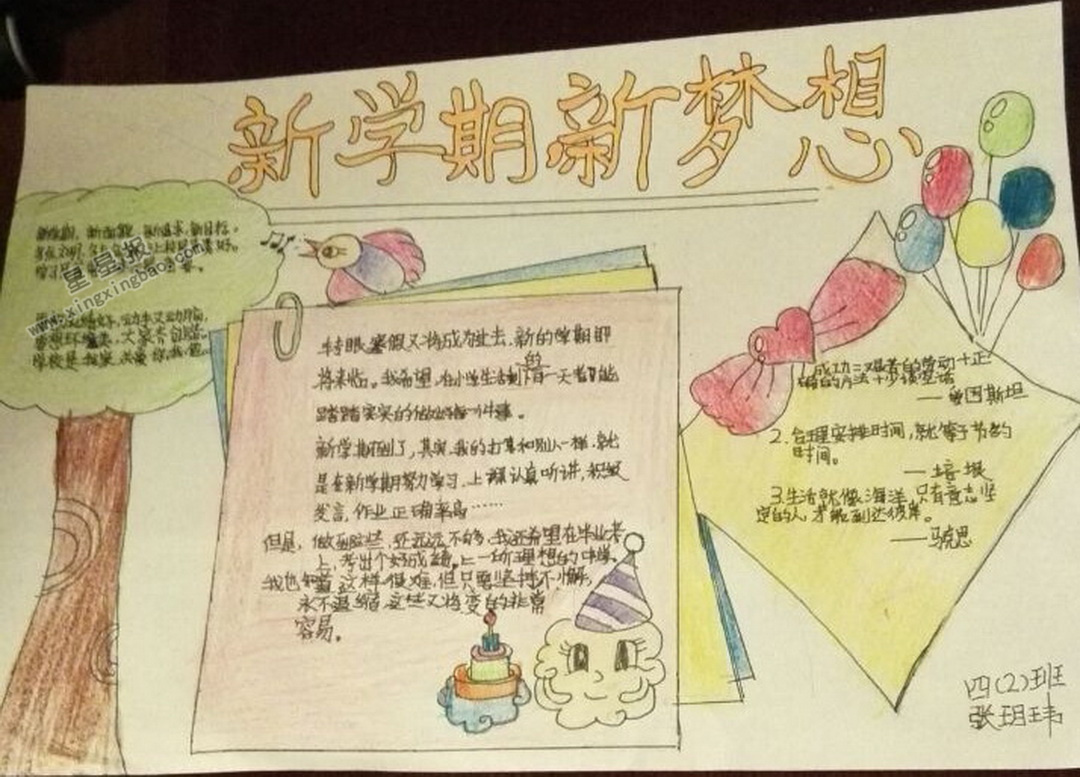 新学期新梦想
新学期，新面貌，新追求，新目标。
星星报
www.xingxingbao.com
转眼寒假又将成为过去，新的学期即
将来临。我希望，在小学生活剩下的每一天都能
踏踏实实的做好每一件事。
新学期到了，其实，我的打算和别人一样，就
是在新学期努力学习，上课认真听讲，积极
发言，作业正确率高……
但是，做到这些，还远远不够，我还希望在毕业考
上，考出个好成绩，上一所理想的中学。
我也知道这样很难，但只要坚持不懈，
永不退缩，这些又将变的非常
容易。
1.成功=艰苦的劳动+正
确的方法+少谈空话
——爱因斯坦
2.合理安排时间，就等于节约
时间。
——培根
3.生活就像海洋，只有意志坚
定的人，才能到达彼岸。
——马克思
四(2)班
张玥玮